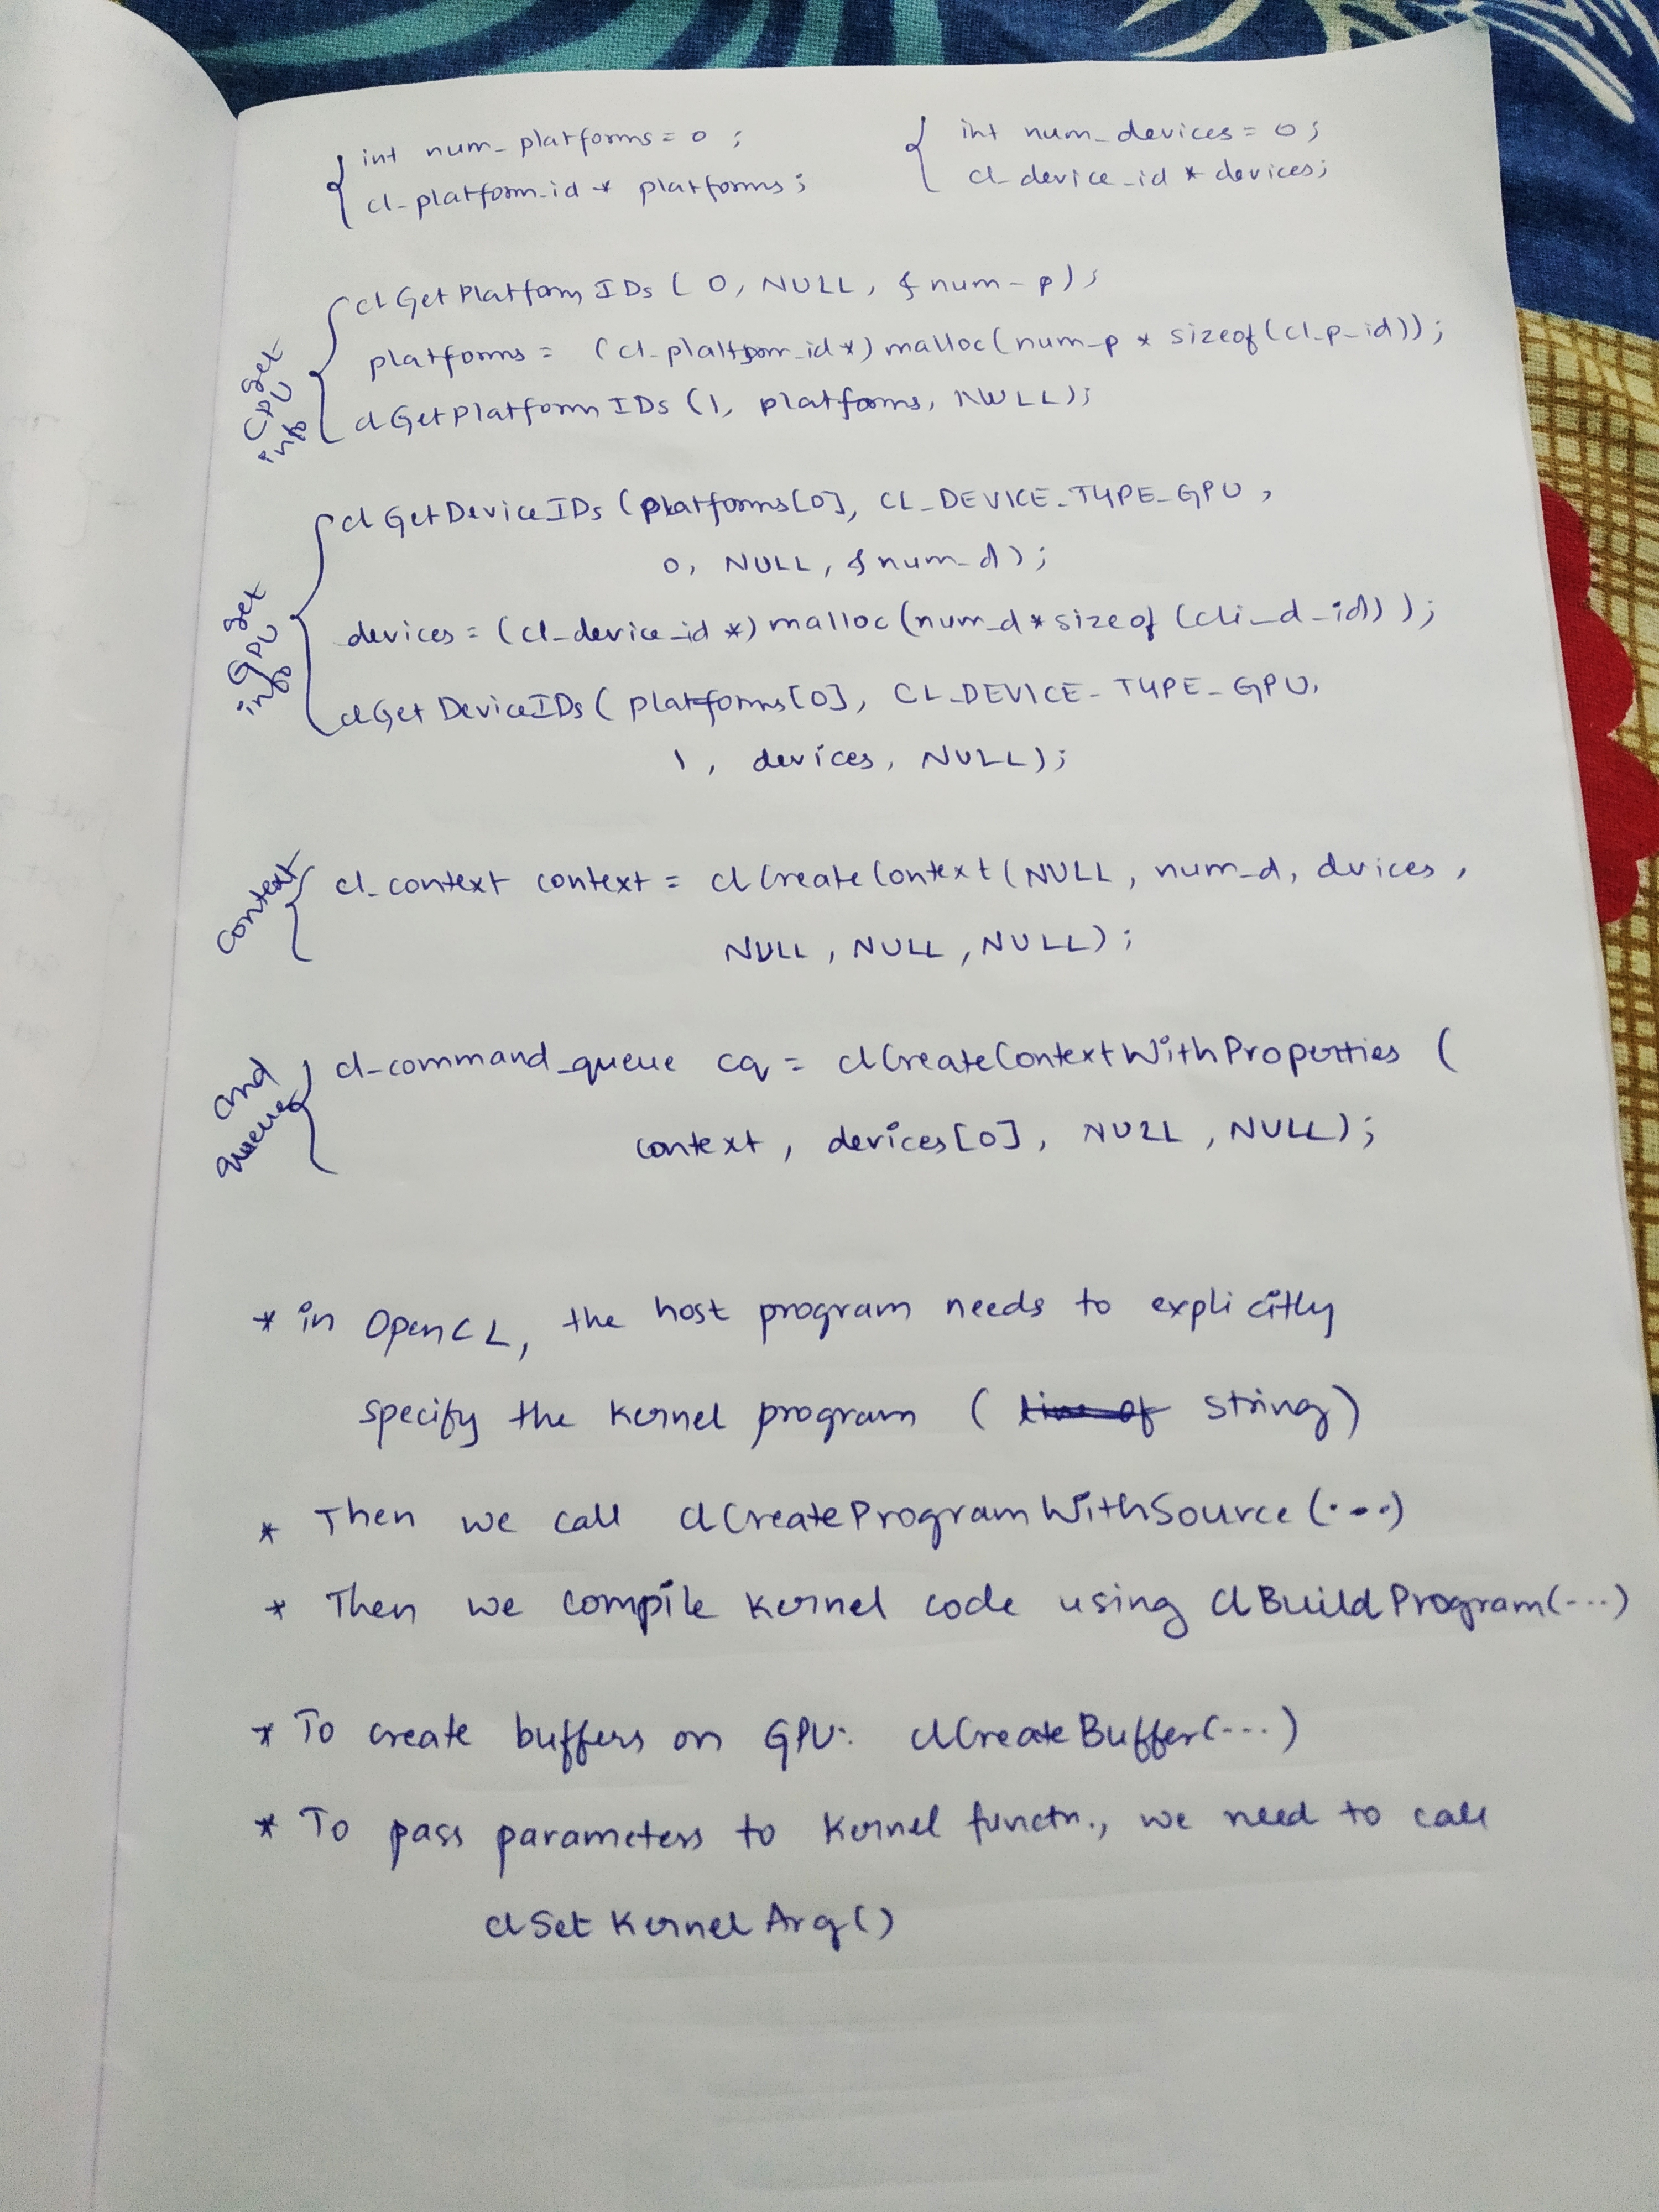 int num_platforms = 0 ;
cl_platform_id * platforms ;
int num_devices = 0 ;
cl_device_id * devices;
get CPU info
clGetPlatformIDs ( 0, NULL, &num_p ) ;
platforms = (cl_platform_id*) malloc(num_p * sizeof(cl_p_id)) ;
clGetPlatformIDs (1, platforms, NULL);
get GPU info
clGetDeviceIDs (platforms[0], CL_DEVICE_TYPE_GPU ,
0, NULL, &num_d) ;
devices = (cl_device_id *) malloc (num_d * sizeof (cli_d_id) ) ;
clGetDeviceIDs ( platforms[0], CL_DEVICE_TYPE_GPU,
1 , devices, NULL) ;
Context
cl_context context = clCreateContext (NULL, num_d, dvices ,
NULL , NULL , NULL) ;
cmd queue
cl_command_queue cq = clCreateContextWithProperties (
context , devices[0], NULL , NULL) ;
* in OpenCL, the host program needs to explicitly
specify the kernel program ( line of string)
* Then we call clCreateProgramWithSource (...)
* Then we compile kernel code using clBuildProgram(...)
* To create buffers on GPU: clCreateBuffer(...)
* To pass parameters to kernel functn., we need to call
clSetKernelArg()